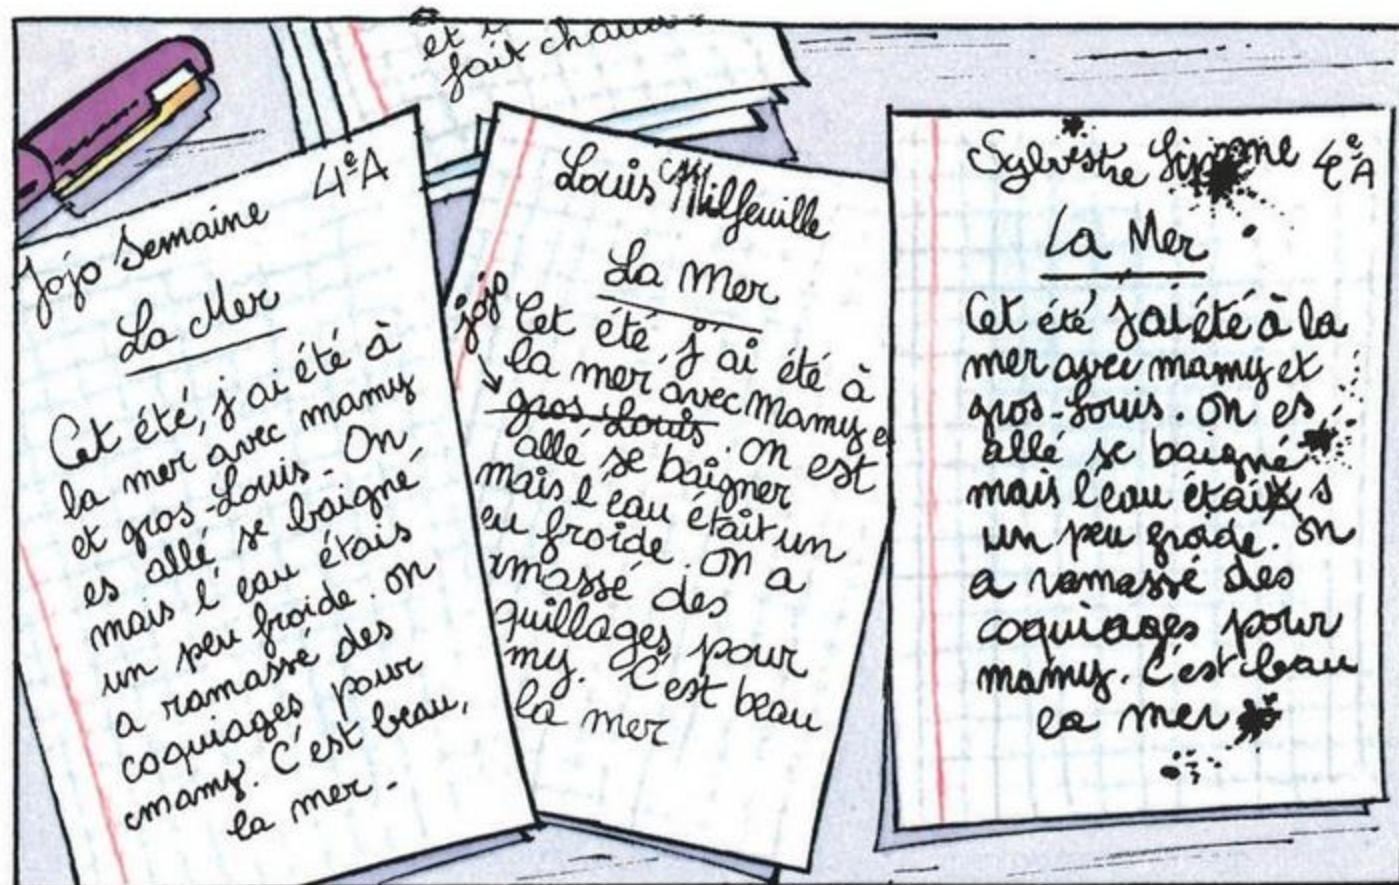 et
fait chaud
Jojo Semaine 4e A
La Mer
Cet été, j'ai été à
la mer avec mamy
et gros-Louis. On
es allé se baigné
mais l'eau étais
un peu froide. on
a ramassé des
coquiages pour
mamy. C'est beau,
la mer.
Louis Milfeuille
La Mer
jojo
Cet été, j'ai été à
la mer avec Mamy et
gros Louis. on est
allé se baigner
mais l'eau était un
eu froide. on a
massé des
quillages pour
my. C'est beau
la mer
Sylvestre 4e A
La Mer
Cet été j'ai été à la
mer avec mamy et
gros-Louis. on es
allé se baigné
mais l'eau étaits
un peu froide. on
a ramassé des
coquiages pour
mamy. C'est beau
la mer